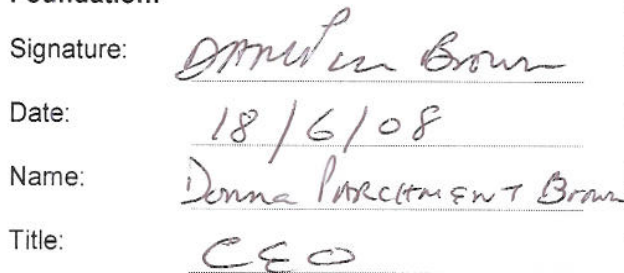 Foundation:
Signature: Brown
Date: 18/6/08
Name: Donna PARCHMENT Brown
Title: CEO